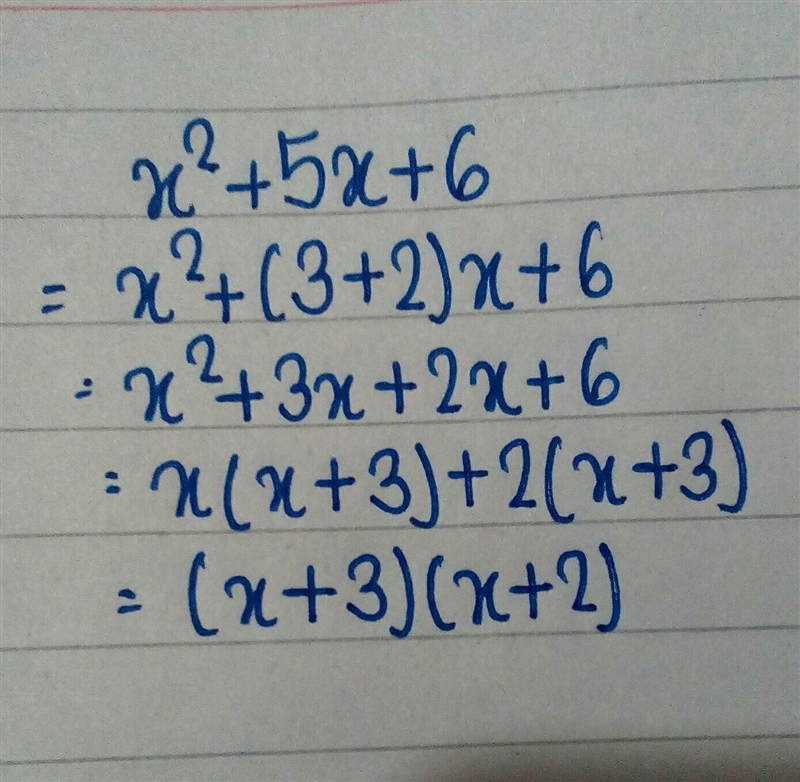 x²+5x+6
= x²+(3+2)x+6
= x²+3x+2x+6
= x(x+3)+2(x+3)
= (x+3)(x+2)